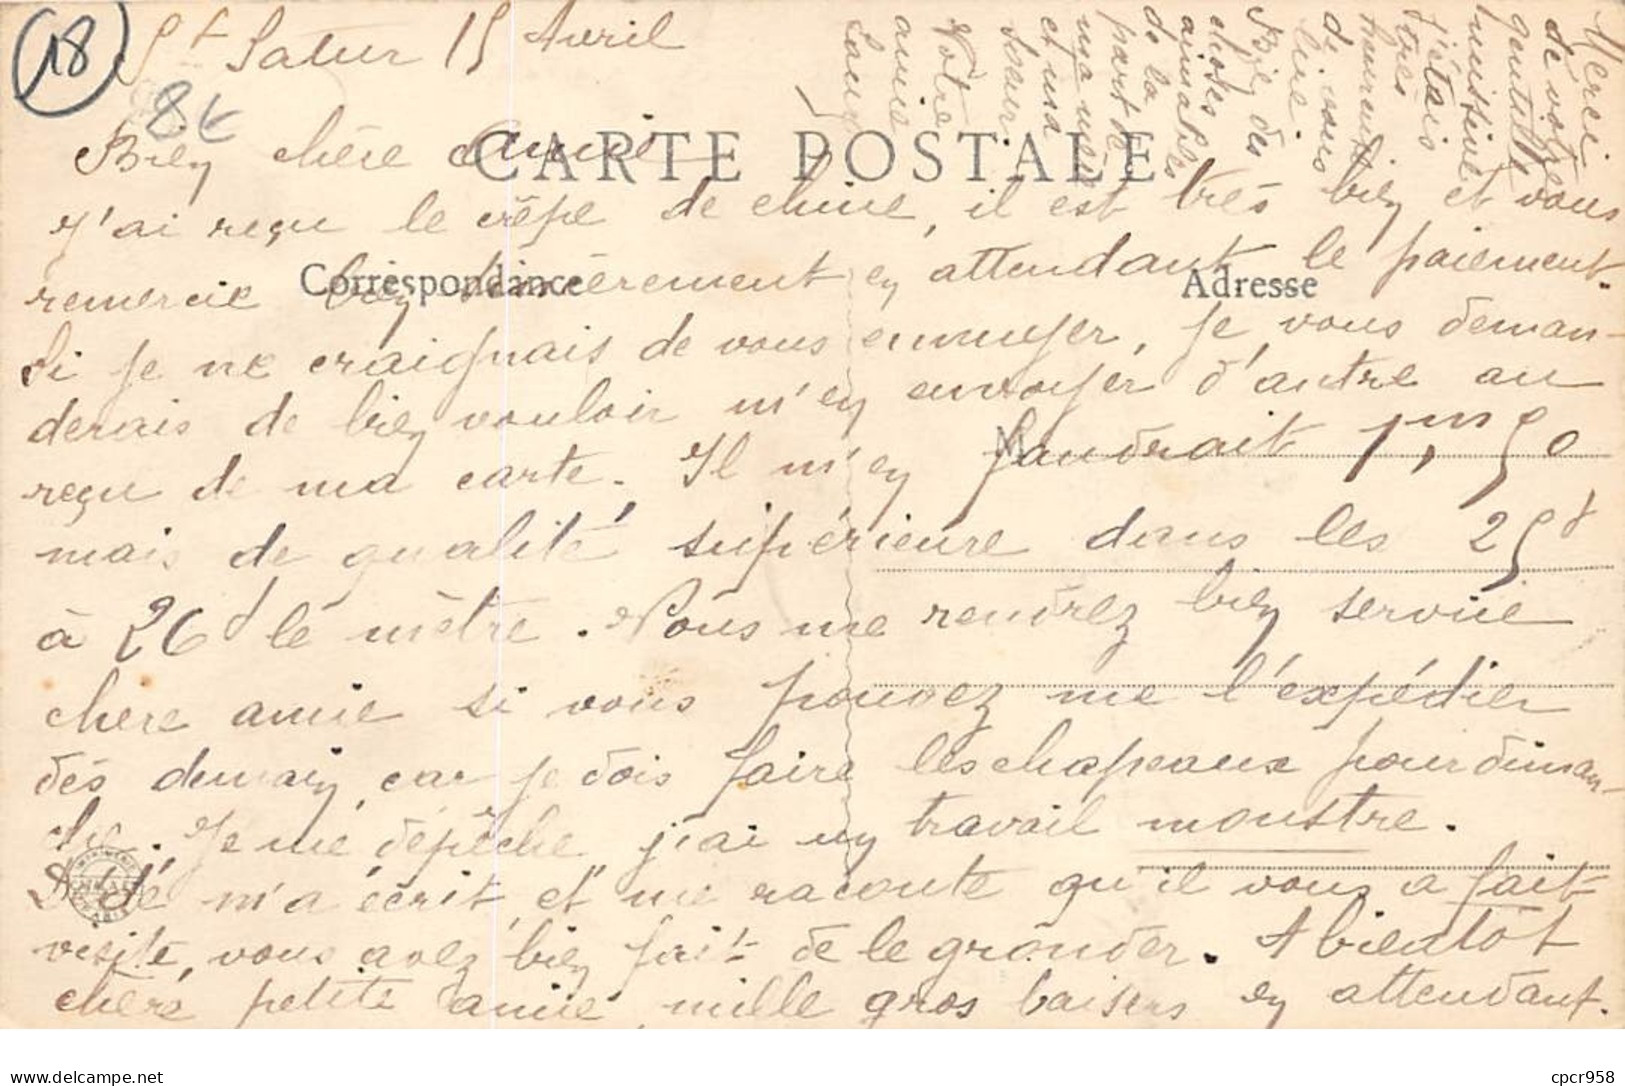 18
St Satur 15 Avril
8€
CARTE POSTALE
Correspondance
Adresse
M
Bien chère Amie
J'ai reçu le crêpe de chine, il est très bien et vous
remercie bien sincèrement en attendant le paiement.
Si je ne craignais de vous ennuyer, je vous deman-
derais de bien vouloir m'en envoyer d'autre au
reçu de ma carte. Il m'en faudrait 1m,50
mais de qualité supérieure dans les 25f
à 26f le mètre. Vous me rendrez bien service
chère amie si vous pouvez me l'expédier
dès demain, car je dois faire les chapeaux pour diman-
che. Je me dépêche j'ai un travail monstre.
Dédé m'a écrit et me raconte qu'il vous a fait
visite, vous avez bien fait de le gronder. A bientôt
chère petite amie, mille gros baisers en attendant.
Merci
de votre
gentille
missive
j'étais
très
heureuse
de vous
lire.
Bien des
choses
aimables
de la
part de
ma mère
et ma
soeur
Votre
amie
cpcr958